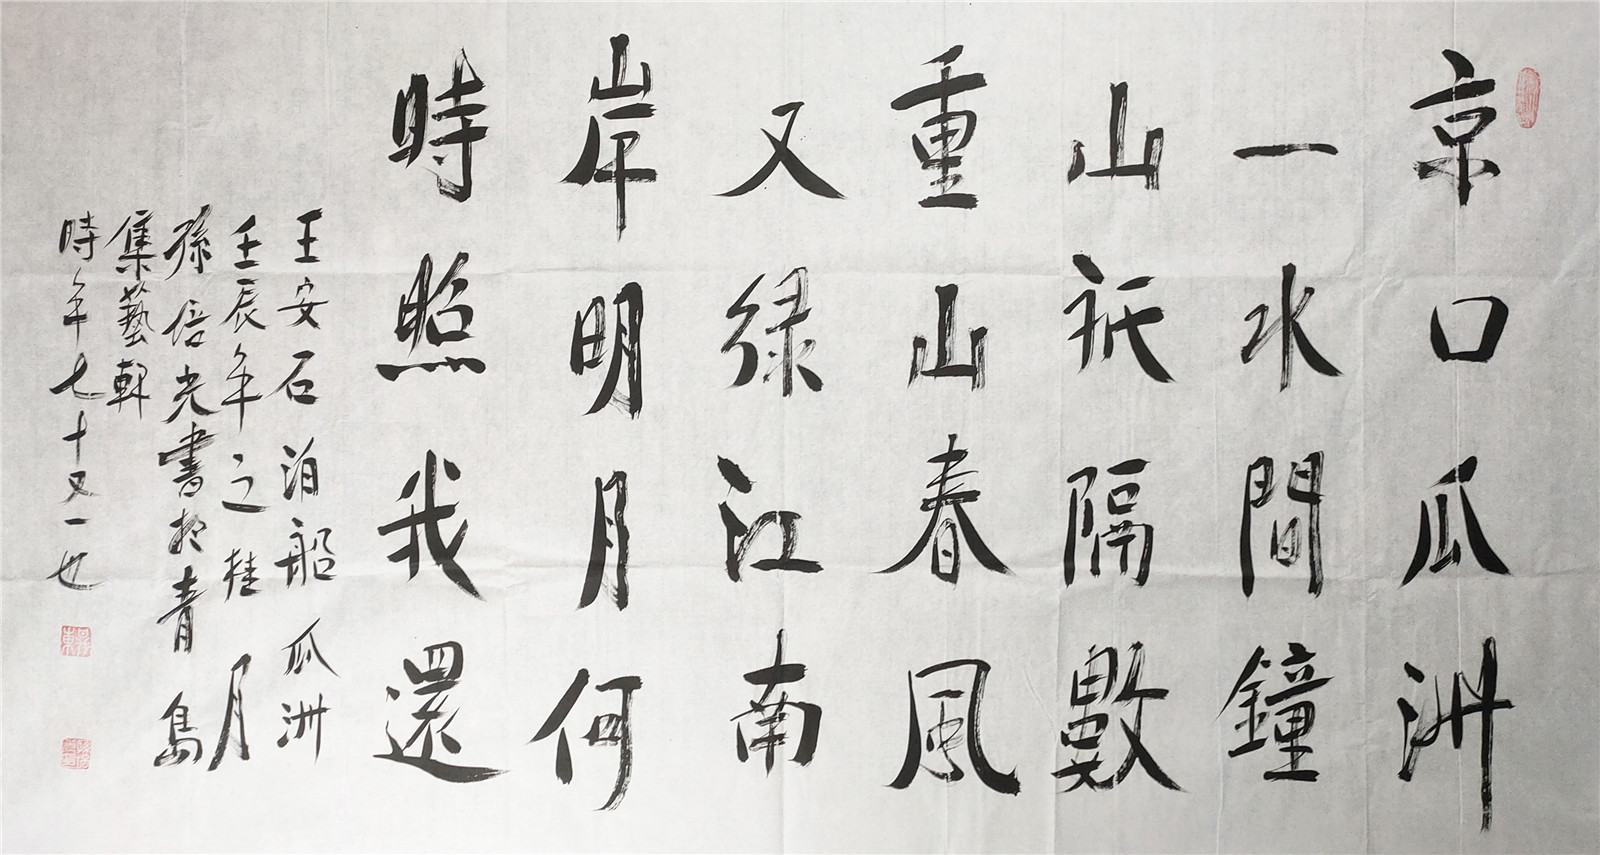 京口瓜洲
一水間鐘
山祇隔數
重山春風
又绿江南
岸明月何
時照我還
王安石泊船瓜洲
壬辰年之桂月
孫培光書於青島
集藝軒
時年七十又一也